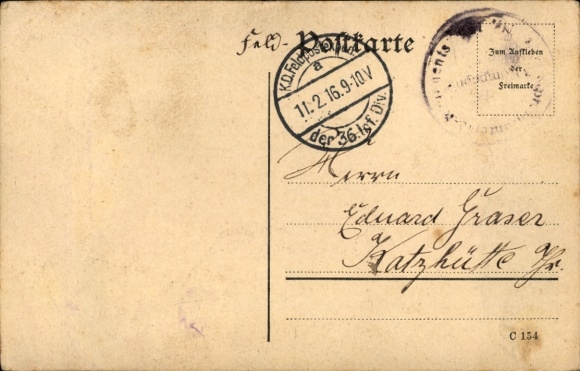 Feld- Postkarte
K.D. Feldpostexped.
a
11.2.16.9-10V
der 36. Inf. Div.
Zum Aufkleben
der
Freimarke
Herrn
Eduard Graser
Katzhütte Th.
C 154